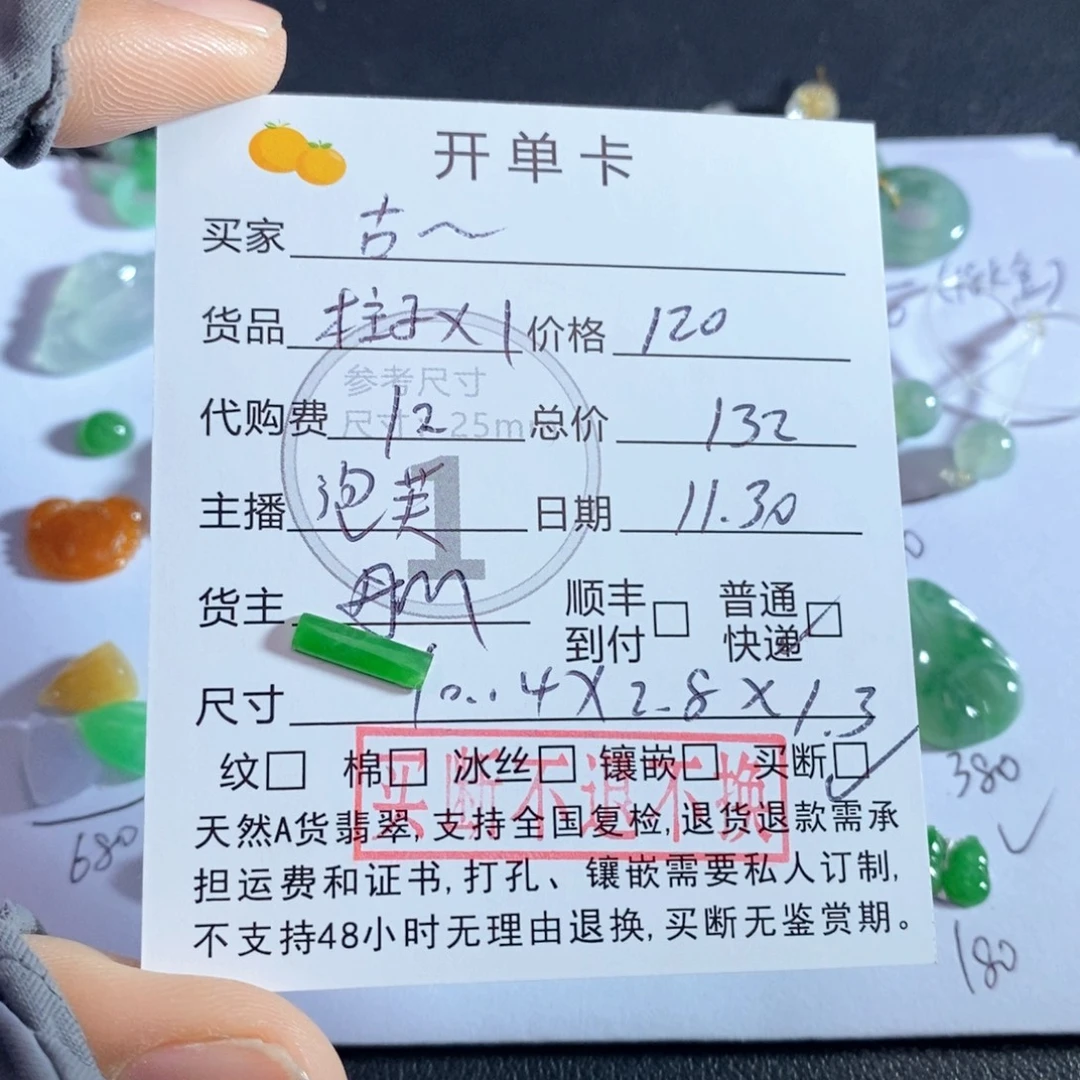 开单卡
买家 古～
货品 柱子X1 价格 120
参考尺寸
代购费 12 总价 132
尺寸：25mm
1
主播 泡芙 日期 11.30
货主 顺丰到付□ 普通快递□
尺寸 10.4X2.8X1.3
纹□ 棉□ 冰丝□ 镶嵌□ 买断□
买断不退不换
天然A货翡翠,支持全国复检,退货退款需承
担运费和证书,打孔、镶嵌需要私人订制,
不支持48小时无理由退换,买断无鉴赏期。
680
380
180